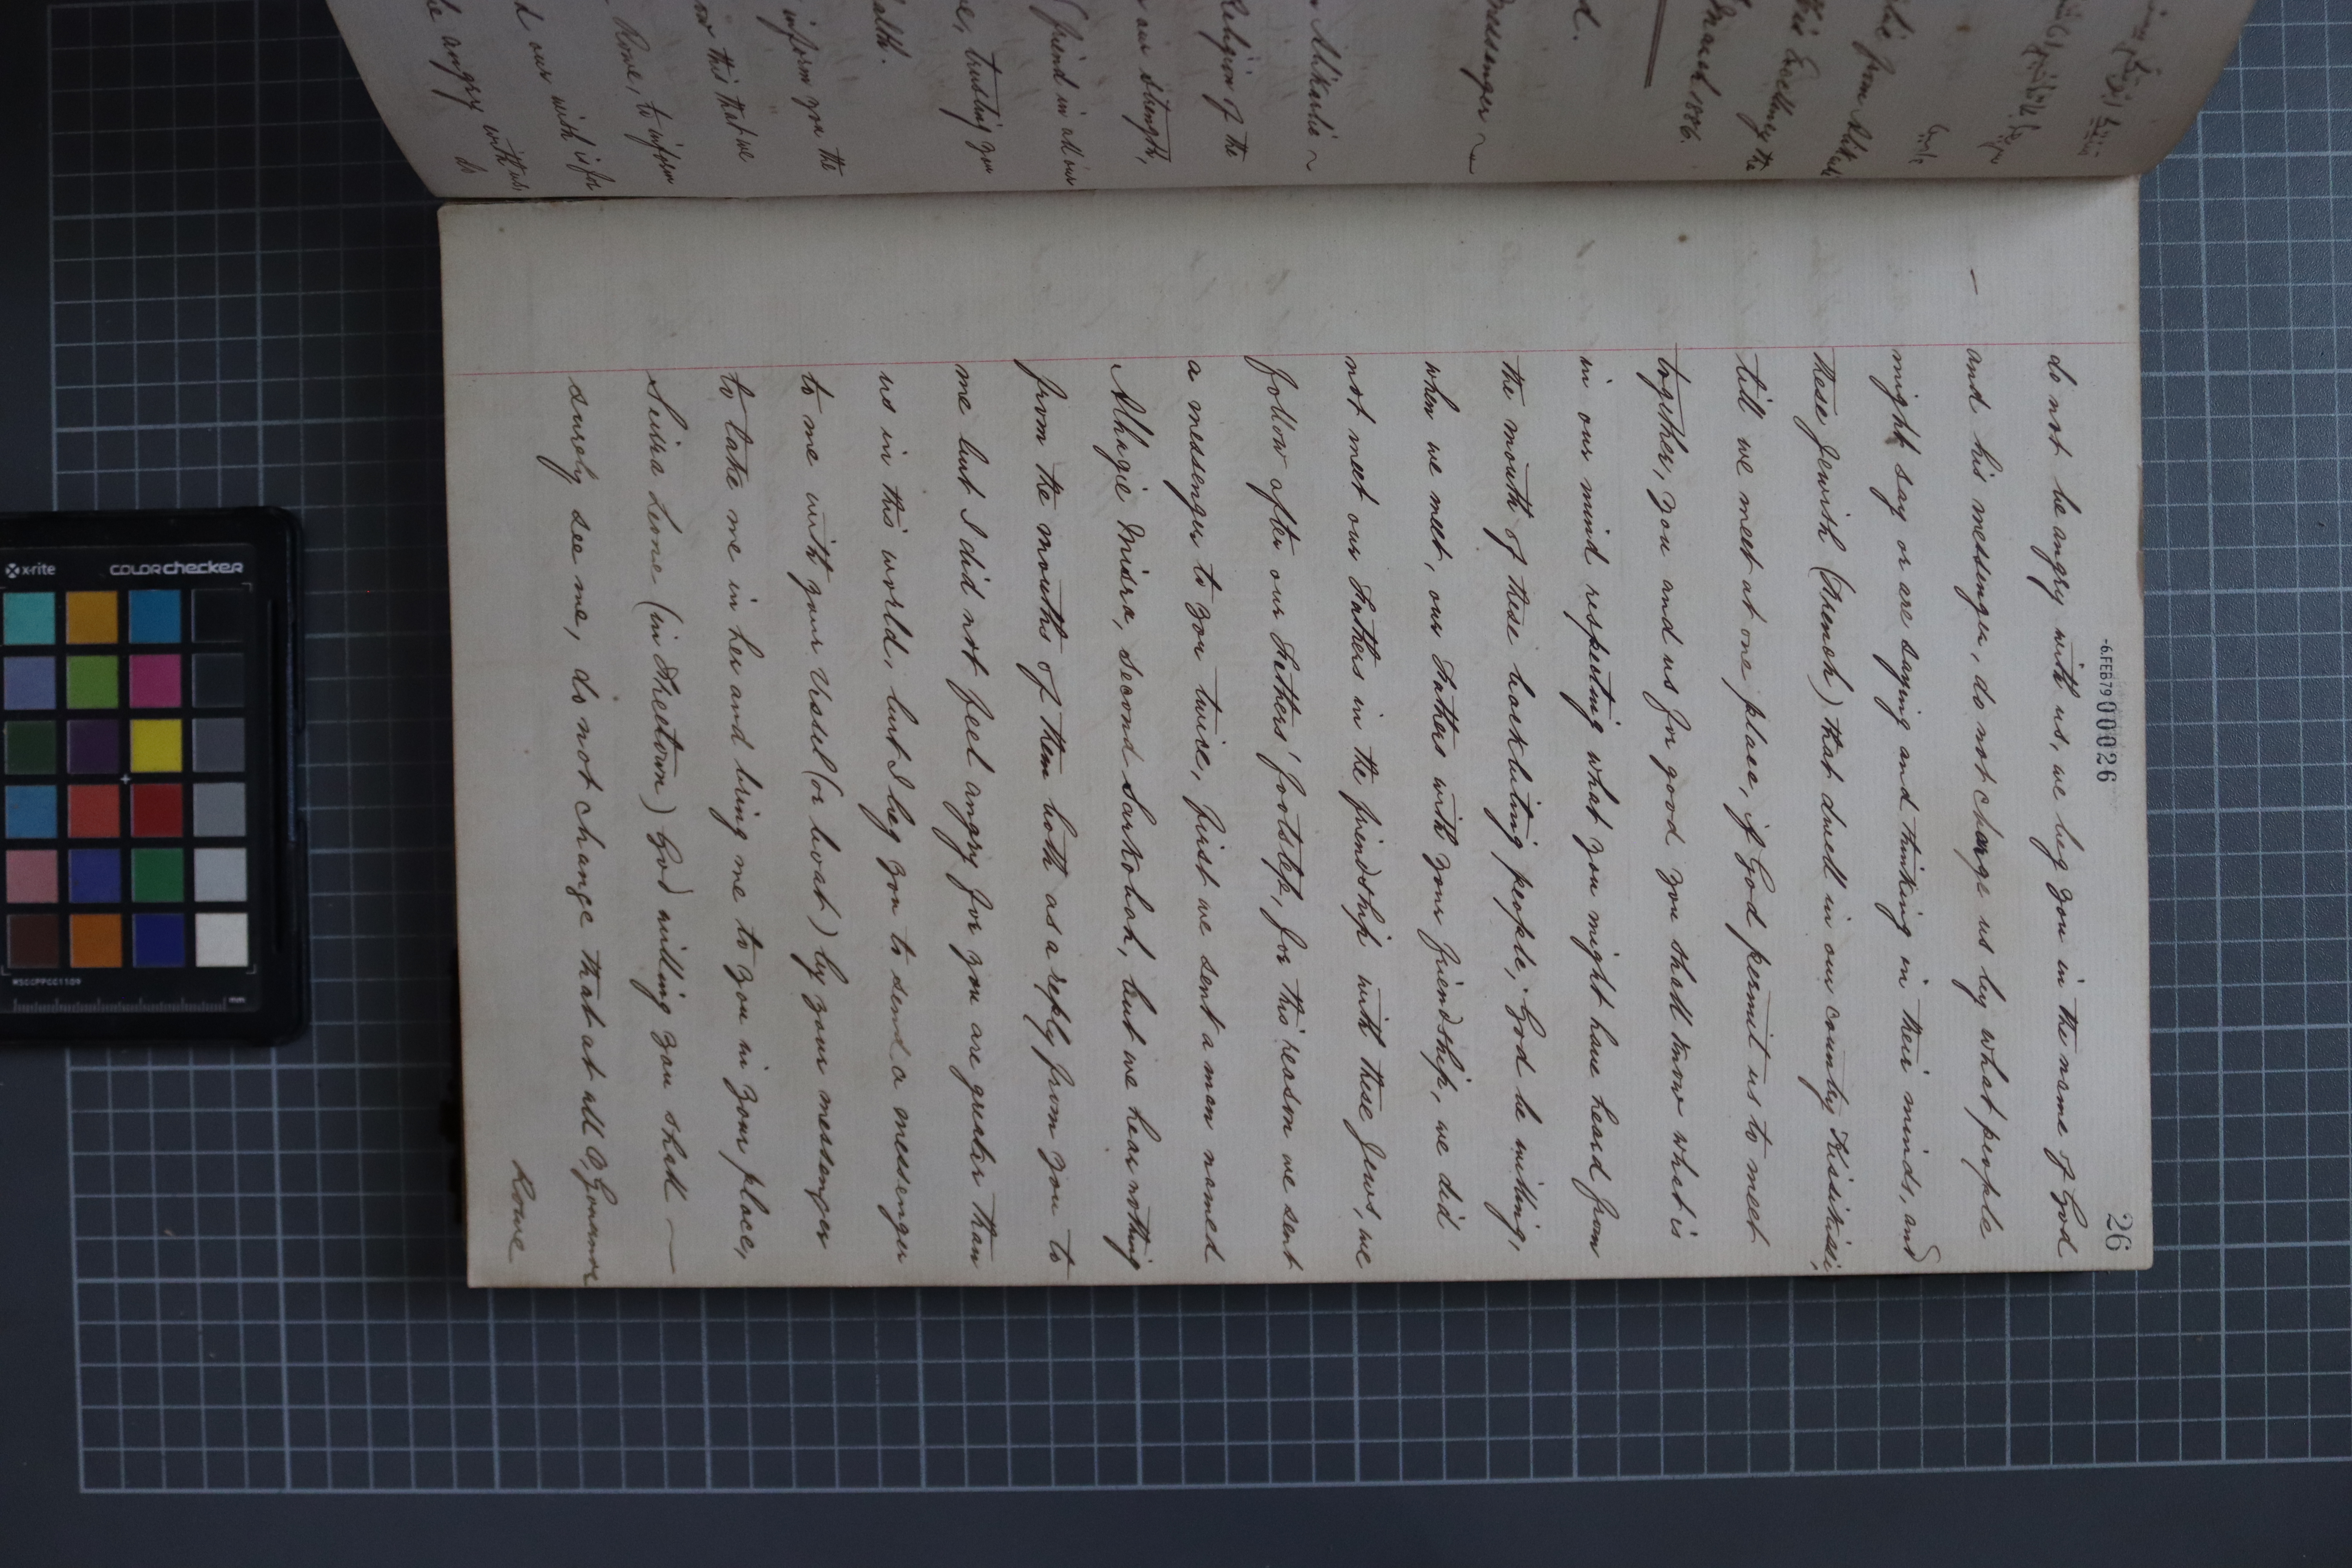 26
-6.FEB79 000026
do not be angry with us, we beg you in the name of God
and his messenger, do not charge us by what people
might say or are saying and thinking in their minds, and
these Jewish (French) that dwell in our country Kisikisi,
till we meet at one place, if God permit us to meet
together, you and us for good you shall know what is
in our mind respecting what you might have heard from
the mouth of these backbiting people; God be willing,
when we meet, our Fathers with your friendship, we did
not meet our Fathers in the friendship with these Jews, we
follow after our Fathers' footstep, for this reason we sent
a messenger to you twice, first we sent a man named
Alhagie Misra, second Sarkobah, but we hear nothing
from the mouths of them both as a reply from you to
me but I did not feel angry for you are greater than
us in this world, but I beg you to send a messenger
to me with your vessel (or boat) by your messenger
to take me in her and bring me to you in your place,
Seirra Leone (in Freetown) God willing you shall
surely see me, do not change that at all O, Governor
Rowe
Messenger
Religion of the
our strength,
friend in all our
trusting you
inform you the
this that we
Rowe, to inform
our wish is for
angry with us,
do
x-rite
colorchecker
MSCCPPCC1109
mm